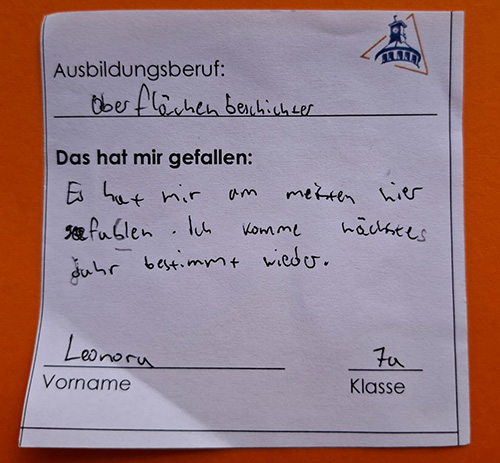 Ausbildungsberuf:
Oberflächenbeschichter
Das hat mir gefallen:
Es hat mir am meisten hier
gefallen. Ich komme nächstes
Jahr bestimmt wieder.
Leonora
Vorname
7a
Klasse